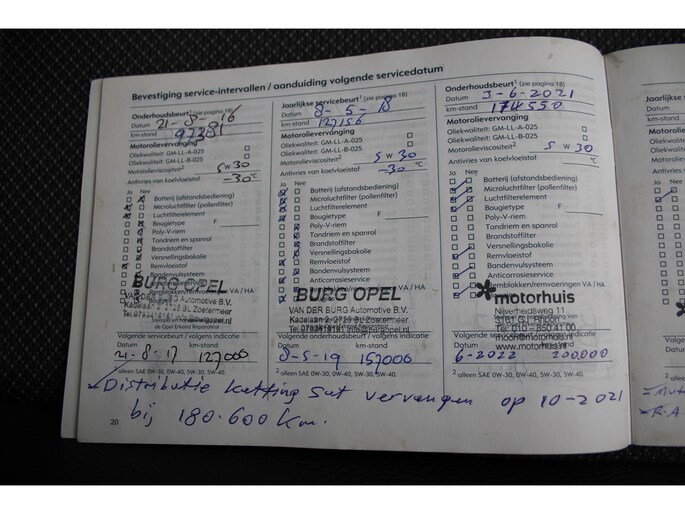 Bevestiging service-intervallen / aanduiding volgende servicedatum
Onderhoudsbeurt¹ (zie pagina 18)
Datum 21-8-'16
km-stand 97381
Motorolievervanging
Oliekwaliteit: GM-LL-A-025
Oliekwaliteit: GM-LL-B-025
Motorolieviscositeit² 5W30
Antivries van koelvloeistof -30°C
Ja Nee
Batterij (afstandsbediening)
Microluchtfilter (pollenfilter)
Luchtfilterelement
Bougietype F
Poly-V-riem
Tandriem en spanrol
Brandstoffilter
Versnellingsbakolie
Remvloeistof
Bandenvulsysteem
BURG OPEL
VAN DER BURG Automotive B.V.
Volgende servicebeurt / volgens indicatie
Datum km-stand
21-8-17 127000
² alleen SAE 0W-30, 0W-40, 5W-30, 5W-40.
20
Jaarlijkse servicebeurt¹ (zie pagina 18)
Datum 8-5-18
km-stand 127156
Motorolievervanging
Oliekwaliteit: GM-LL-A-025
Oliekwaliteit: GM-LL-B-025
Motorolieviscositeit² 5W30
Antivries van koelvloeistof -30°C
Ja Nee
Batterij (afstandsbediening)
Microluchtfilter (pollenfilter)
Luchtfilterelement
Bougietype F
Poly-V-riem
Tandriem en spanrol
Brandstoffilter
Versnellingsbakolie
Remvloeistof
Bandenvulsysteem
Anticorrosieservice
BURG OPEL
VAN DER BURG Automotive B.V.
Volgende onderhoudsbeurt / volgens indicatie
Datum km-stand
8-5-19 157000
² alleen SAE 0W-30, 0W-40, 5W-30, 5W-40.
Onderhoudsbeurt¹ (zie pagina 18)
Datum 3-6-2021
km-stand 174550
Motorolievervanging
Oliekwaliteit: GM-LL-A-025
Oliekwaliteit: GM-LL-B-025
Motorolieviscositeit² 5W30
Antivries van koelvloeistof °C
Ja Nee
Batterij (afstandsbediening)
Microluchtfilter (pollenfilter)
Luchtfilterelement
Bougietype F
Poly-V-riem
Tandriem en spanrol
Brandstoffilter
Versnellingsbakolie
Remvloeistof
Bandenvulsysteem
Anticorrosieservice
Remblokken/remvoeringen VA / HA
motorhuis
Nijverheidsweg 11
3161 GJ Rhoon
Tel: 010 - 850 41 00
www.motorhuis.nl
Datum km-stand
6-2022 200.000
² alleen SAE 0W-30, 0W-40, 5W-30, 5W-40.
Distributie ketting set vervangen op 10-2021
bij 180.600 Km.